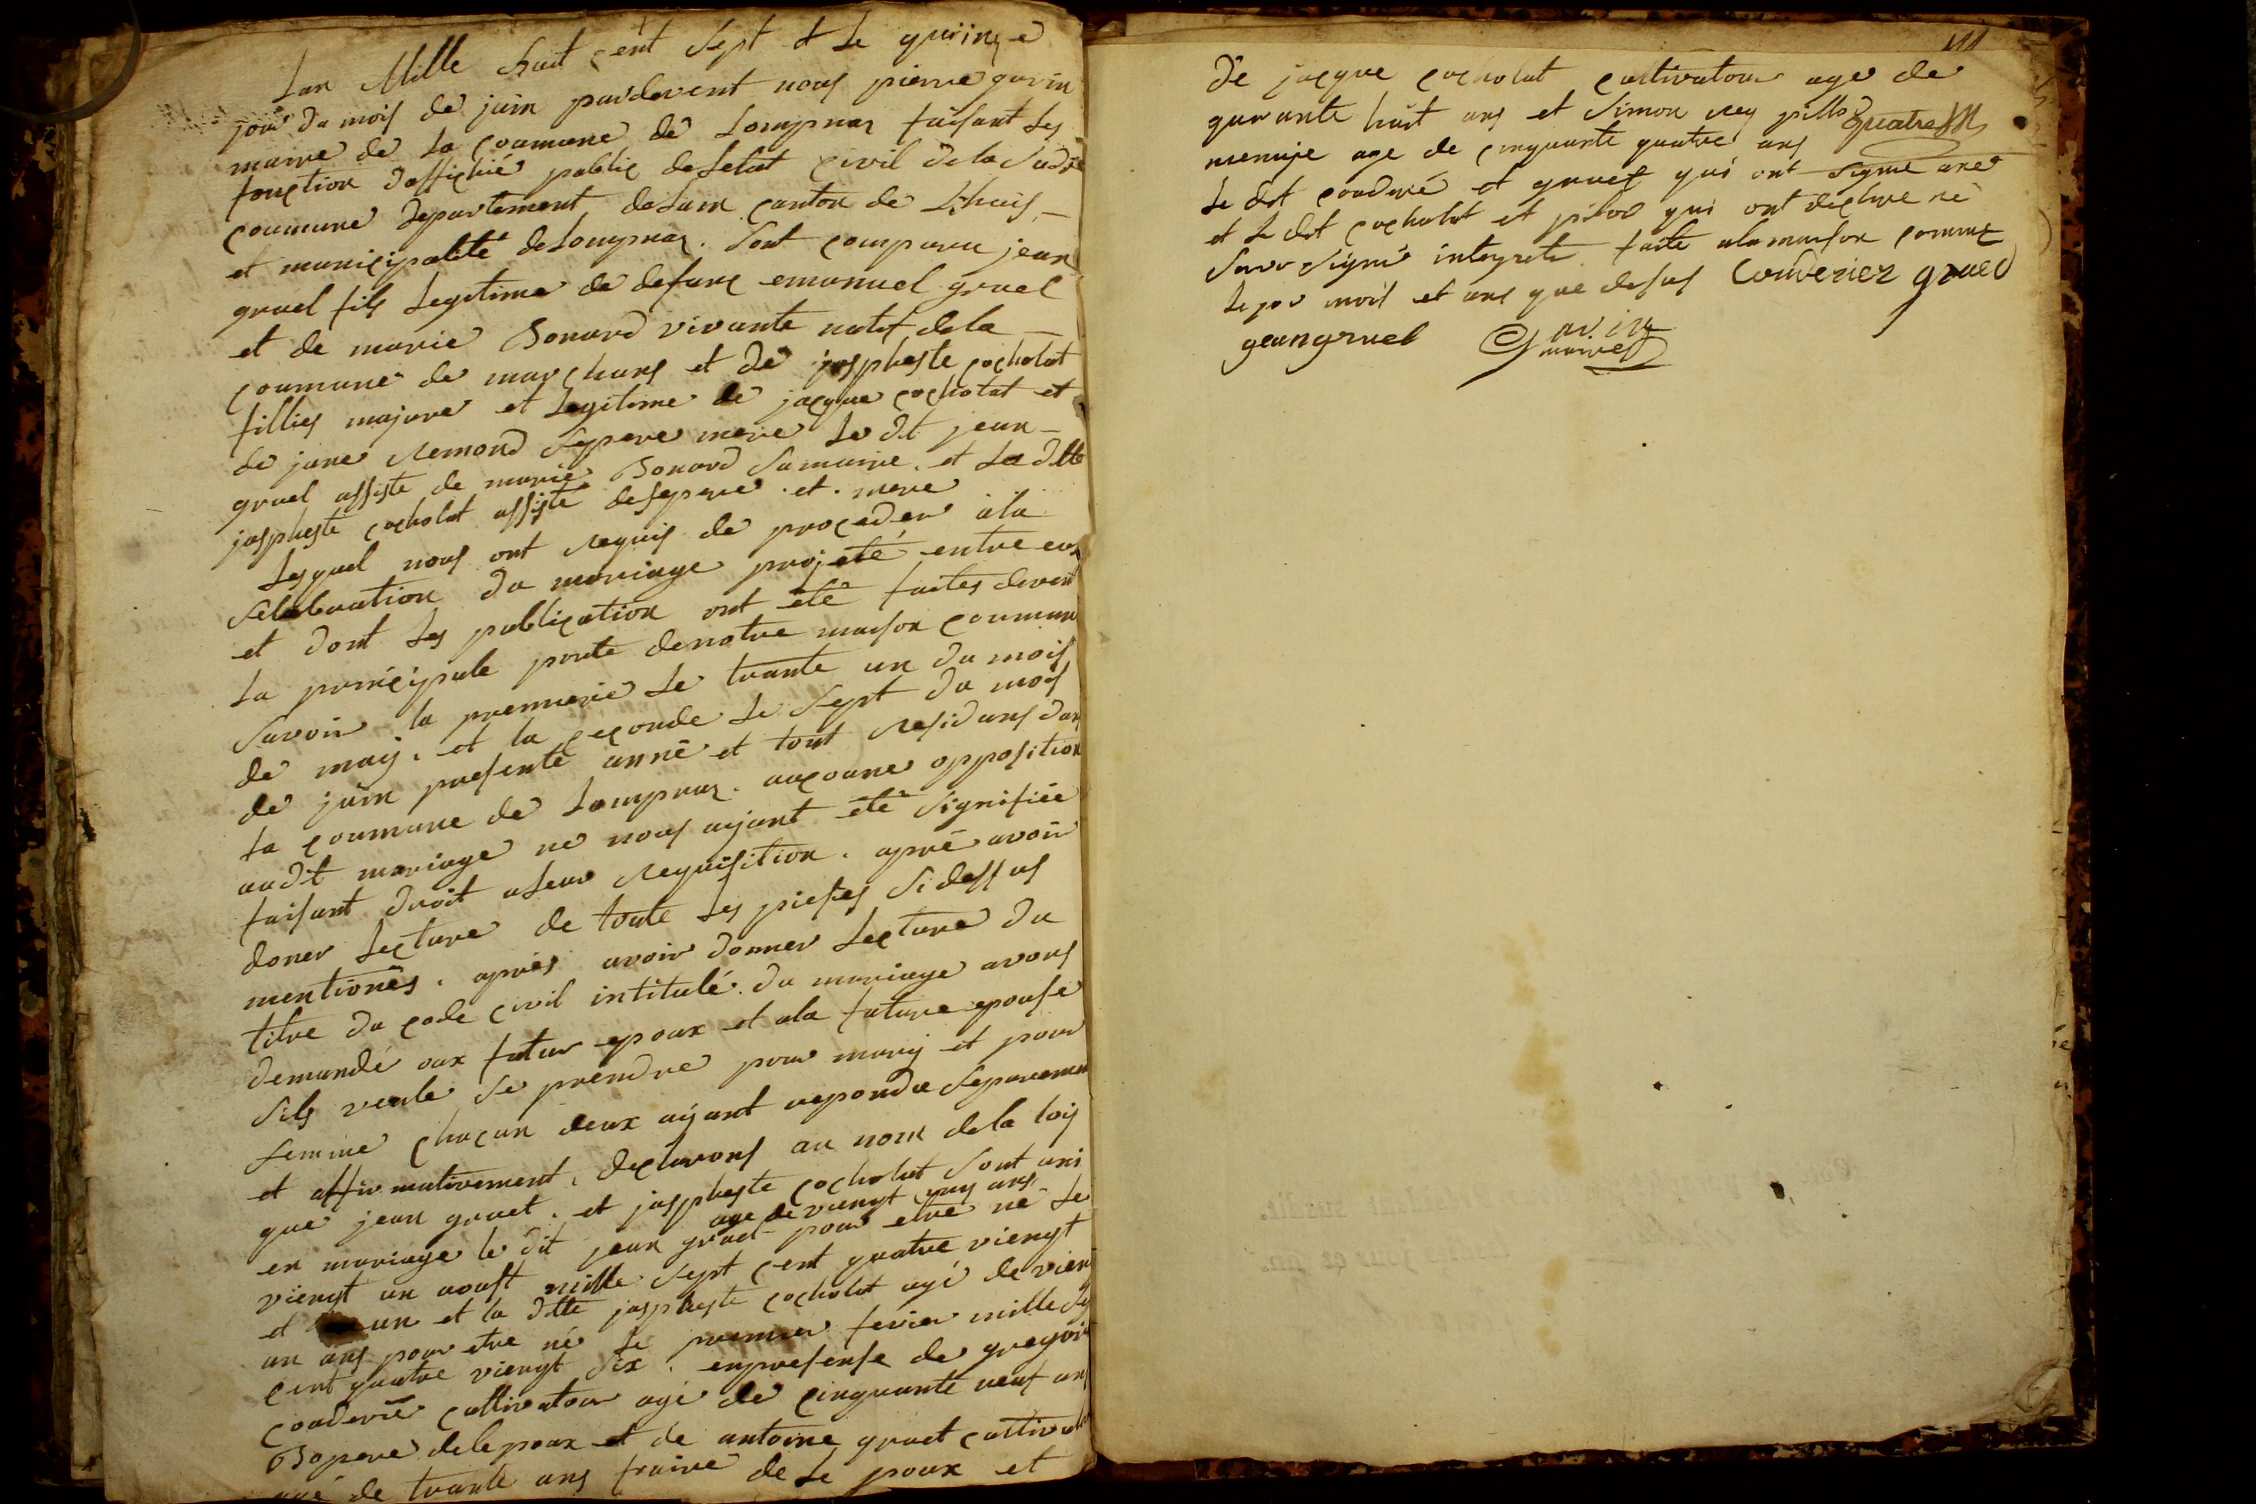 Lan Mille huit cent sept et le quinze
jour du mois de juin pardevent nous pierre garin
maire de la coumune de Lompnaz faisant les
fonction dofficiié public de letat civil de la dite
coumune departement delain canton de Lhuis
et municipalité deLompnaz. sont comparu jean
gruel fils legitime de defunc emanuel gruel
et de marie Bonard vivante natif dela
coumune de marchans et de jospheste cocholat
fillies majure et legitime de jacque cocholat et
de jane Remond sepere mere le dit jean
gruel assiste de marie Bonard samaire. et la dite
jospheste cocholat assiste desepere. et. mere
Lesquel nous ont requis de proceder àla
selebration du mariage projeté entre eux
et dont les publication ont été faites devent
la principale porte denotre maison coumune
savoir la premiere le trante un du mois
de may. et la ceconde le sept du mois
de juin presente anné et tout residans dans
la coumune de Lompnaz. aucoune opposition
audit mariage ne nous ayant été signifiée
faisant droit aleur requisition. apré avoir
doner lecture de toute les piesses sidessus
mentionés. aprés avoir donner lecture du
titre du code civil intitulé. du mariage avons
demandé aux futur epoux et ala future epouse
sils veule se prendre pour mary et pour
femme chacun deux ayant repondu separement
et affirmativement, declarons au nom dela loiy
que jean gruet. et josphegte cocholat sont uni
age de viengt cinq ans
en mariage le dit jean gruet pour etre né le
viengt un aoust mille sept cent quatre viengt
et un et la ditte josphegte cocholat agé de viengt
un ans pour etre né le premier fevier mille sept
cent quatre viengt six. enpresense de gregoire
couderié cultivatour agé de cinquante neuf ans
Bopere delepoux et de antoine gruet cultivatour
agé de trante ans fraire de le poux et
111
De jacque cocholat cultivatour age de
quarante huit ans et simon Rey pillod
menuje age de cinquante quatre ans
le dit couduré et gruet qui ont signe avec
et le dit cocholat et pilod qui ont declare ne
savoir signé integrete faite alamaison comune
lejour mois et ans que desus Couderiez gruel
geangruel Gavin
maire